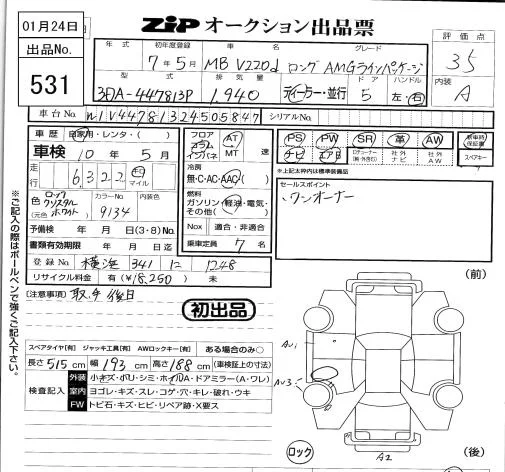 01月24日
ZIP オークション出品票
出品No.
531
年式 初年度登録 車名 グレード
7年5月 MB V220d ロング AMGラインパッケージ
評価点
3.5
型式 排気量 ドア ハンドル
3DA-447813P 1,940 ディーラー・並行 5 左・右
内装
A
車台No. W1V44781324505847 シリアルNo.
車歴 自家用・レンタ・( )
車検 10年 5月
走行 63,220 キロ マイル
色 ロッククリスタルホワイト (元色 ) カラーNo. 9134 内装色
予備検 年 月 日(3・8)No.
書類有効期限 年 月 日迄
登録No. 横浜 341 12 1248
リサイクル料金 有(¥18,250) 未
フロア コラム インパネ AT MT 速
冷房 無・C・AC・AAC
燃料 ガソリン・軽油・電気・その他( )
Nox 適合・非適合
乗車定員 7名
PS PW SR 革 AW
ナビ エアB 社外ナビ 社外AW
新車時保証書
スペアキー
※上記太枠内は標準装備品
セールスポイント
・ワンオーナー
(注意事項) 取々後日
初出品
(前)
スペアタイヤ[有] ジャッキ工具[有] AWロックキー[有] ある場合のみ○
長さ515cm 幅193cm 高さ188cm (車検証上の寸法)
検査記入
外装 小キズ・ポリ・シミ・ホイルA・ドアミラー(A・ワレ)
室内 ヨゴレ・キズ・スレ・コゲ・穴・キレ・破れ・ウキ
FW トビ石・キズ・ヒビ・リペア跡・X要ス
AU1
AU3
ロック
A2
(後)
※ご記入の際はボールペンで強くご記入下さい。